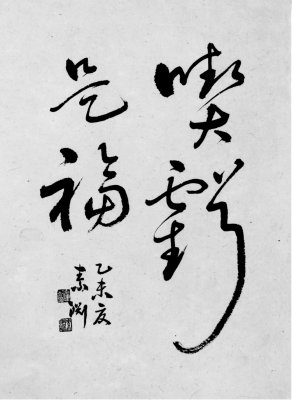 喫虧
是福
乙未夏
素